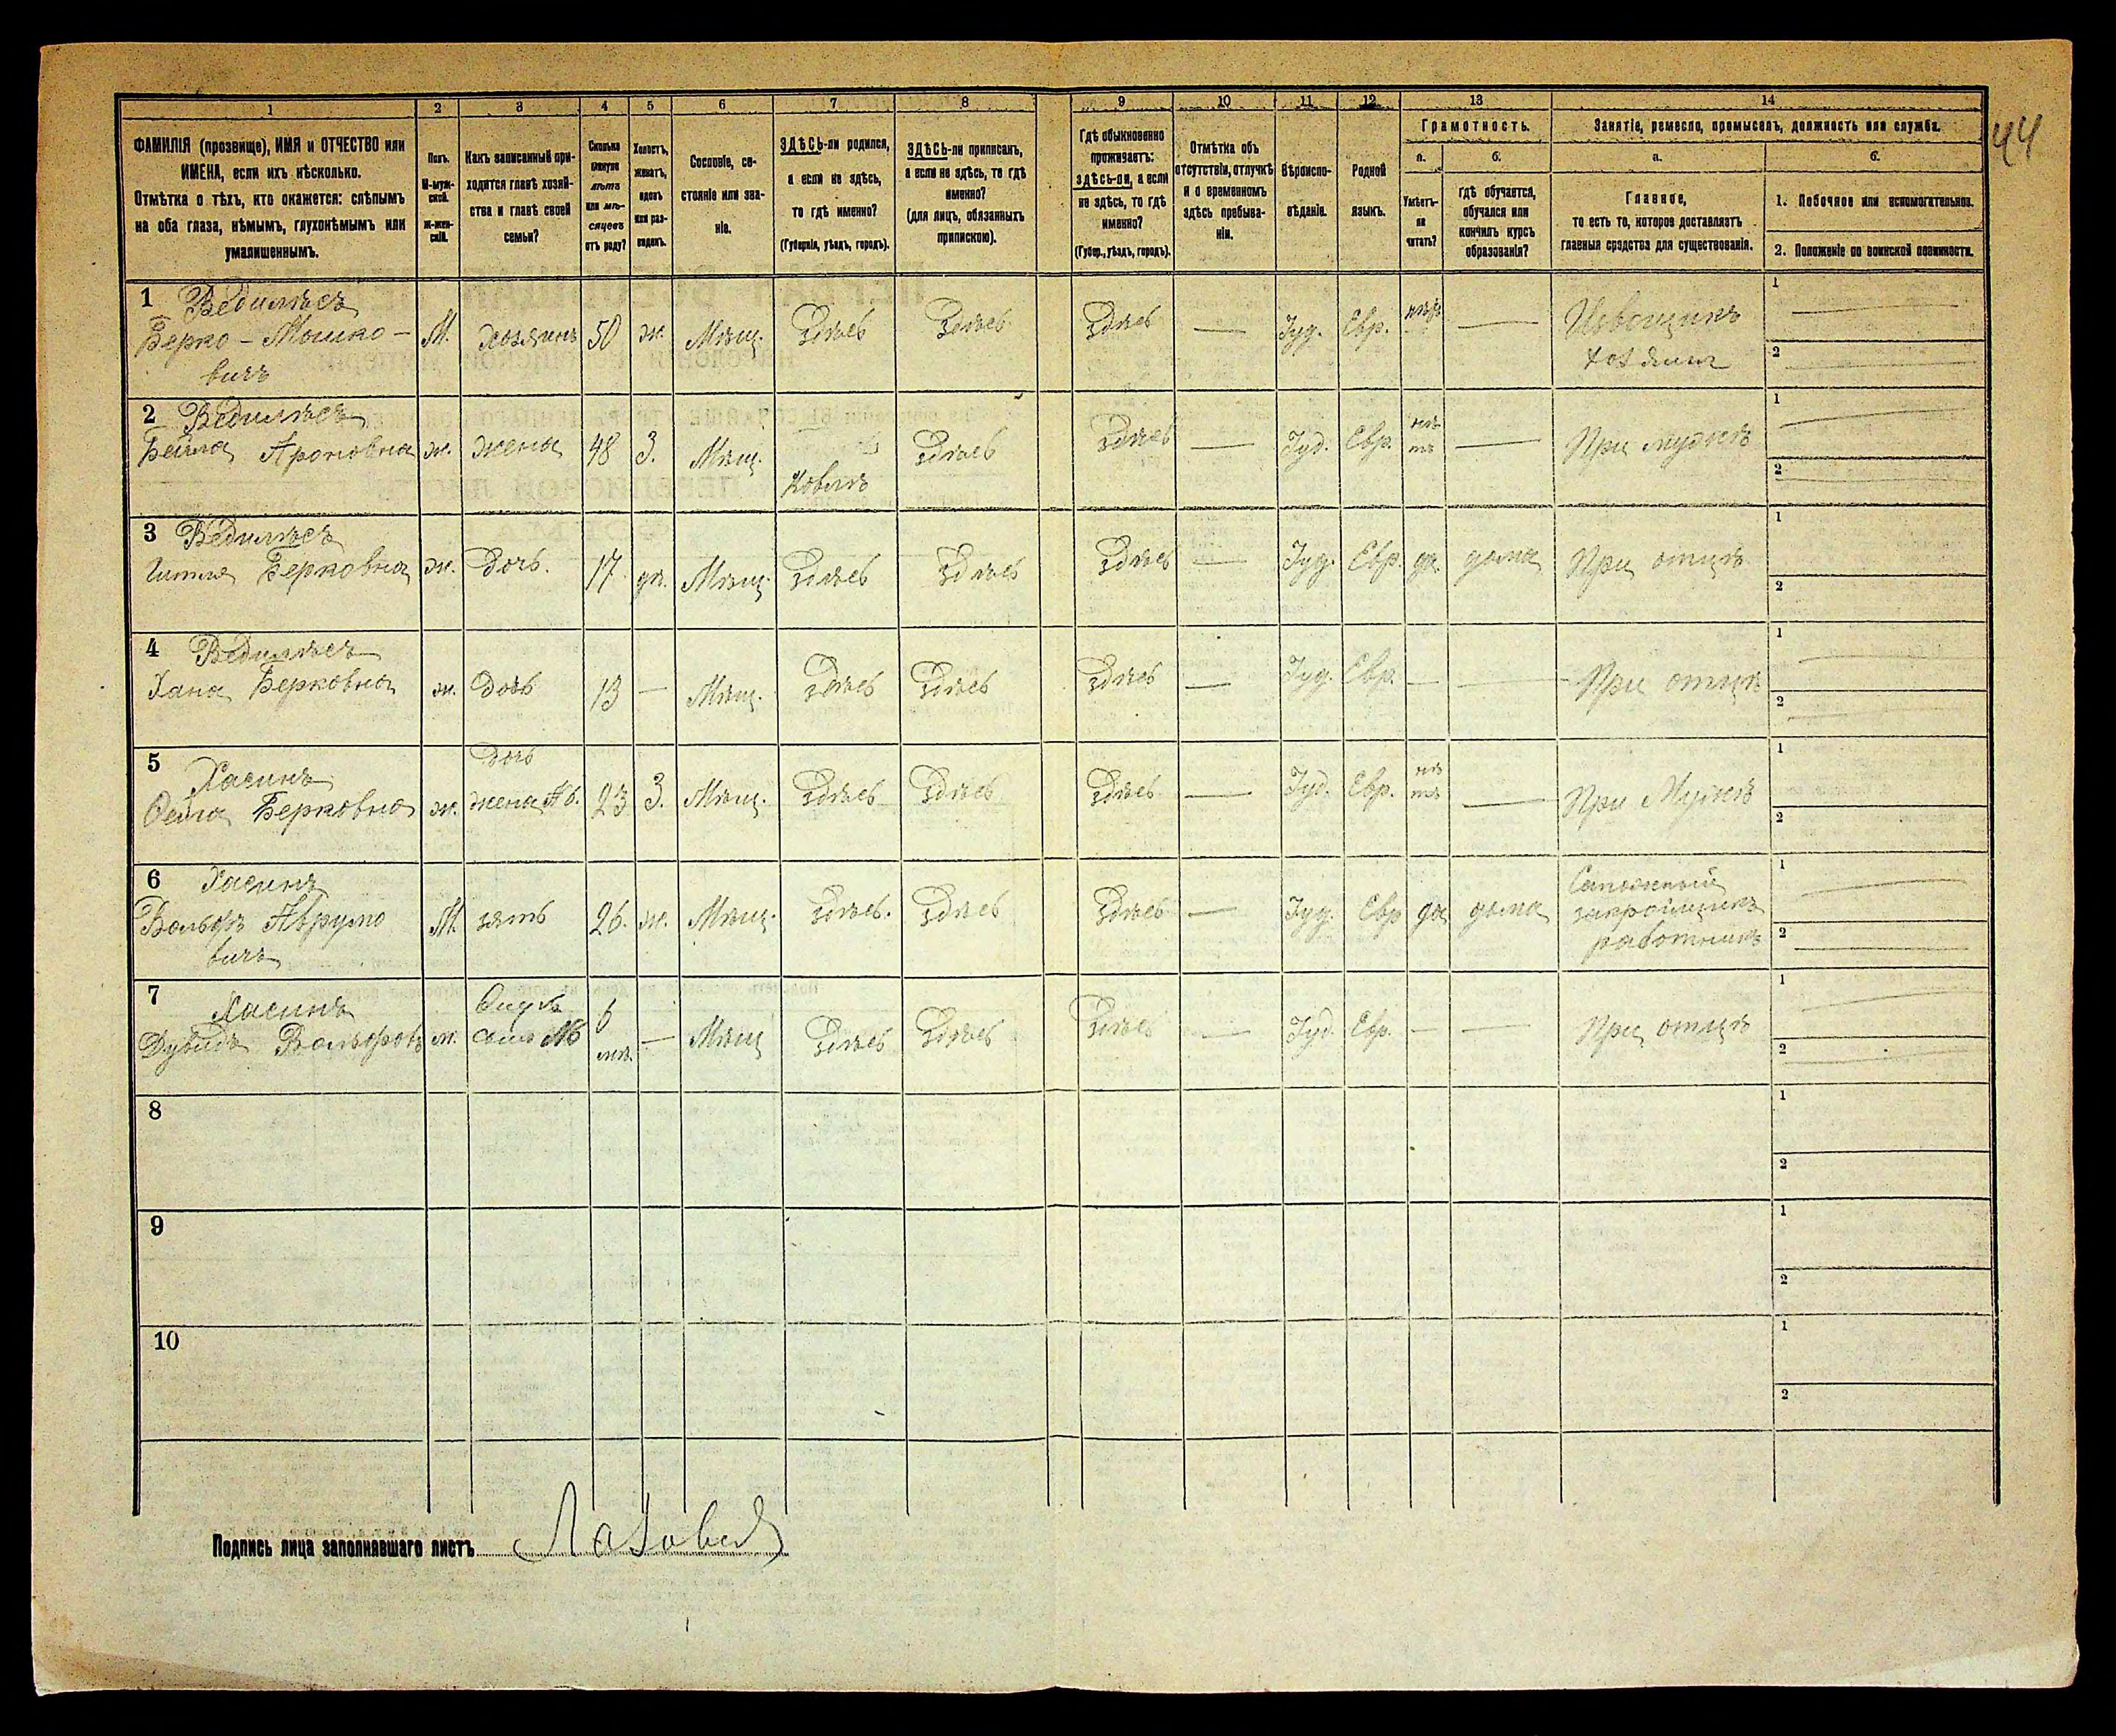 1 2 3 4 5 6 7 8 9 10 11 12 13 14
44
ФАМИЛІЯ (прозвище), ИМЯ и ОТЧЕСТВО или
ИМЕНА, если ихъ нѣсколько.
Отмѣтка о тѣхъ, кто окажется: слѣпымъ
на оба глаза, нѣмымъ, глухонѣмымъ или
умалишеннымъ.
Полъ.
М-муж-
ской.
Ж-жен-
скій.
Какъ записанный при-
ходится главѣ хозяй-
ства и главѣ своей
семьи?
Сколько
минуло
лѣтъ
или мѣ-
сяцевъ
отъ роду?
Холостъ,
женатъ,
вдовъ
или раз-
веденъ.
Сословіе, со-
стояніе или зва-
ніе.
ЗДѢСЬ-ли родился,
а если не здѣсь,
то гдѣ именно?
(Губернія, уѣздъ, городъ).
ЗДѢСЬ-ли приписанъ,
а если не здѣсь, то гдѣ
именно?
(для лицъ, обязанныхъ
припискою).
Гдѣ обыкновенно
проживаетъ:
здѣсь-ли, а если
не здѣсь, то гдѣ
именно?
(Губер., уѣздъ, городъ).
Отмѣтка объ
отсутствіи, отлучкѣ
и о временномъ
здѣсь пребыва-
ніи.
Вѣроиспо-
вѣданіе.
Родной
языкъ.
Грамотность.
а.
Умѣетъ-
ли
читать?
б.
гдѣ обучается,
обучался или
кончилъ курсъ
образованія?
Занятіе, ремесло, промыселъ, должность или служба.
а.
Главное,
то есть то, которое доставляетъ
главныя средства для существованія.
б.
1. Побочное или вспомогательное.
2. Положеніе по воинской повинности.
1 Ведилѣсъ
Берко - Мошко - М. хозяинъ 50 ж. Мѣщ. Здѣсь Здѣсь Здѣсь — Іуд. Евр. нѣтъ — Извощикъ 1
вичъ хозяин 2
2 Ведилѣсъ
Бейла Ароновна ж. жена 48 З. Мѣщ. Ковель Здѣсь Здѣсь — Іуд. Евр. нѣтъ — При мужѣ 1
2
3 Ведилѣсъ
Берковна ж. Дочь. 17 дѣ. Мѣщ. Здѣсь Здѣсь Здѣсь — Іуд. Евр. да дома При отцѣ 1
2
4 Ведилѣсъ
Хана Берковна ж. Дочь 13 — Мѣщ. Здѣсь Здѣсь Здѣсь — Іуд. Евр. — — При отцѣ 1
2
5 Хасинъ Дочь
Берковна ж. жена №6. 23 З. Мѣщ. Здѣсь Здѣсь Здѣсь — Іуд. Евр. нѣтъ — При Мужѣ 1
2
6 Хасинъ Сапожный 1
Вольфъ Аврумо М. зять 26. ж. Мѣщ. Здѣсь. Здѣсь Здѣсь — Іуд. Евр да дома закройщикъ
вичъ работникъ 2
7 Хасинъ Внукъ
Дувидъ Вольфовъ м. сынъ №6 6 мѣ. — Мѣщ Здѣсь Здѣсь Здѣсь — Іуд. Евр. — — При отцѣ 1
2
8 1
2
9 1
2
10 1
2
Подпись лица заполнявшаго листъ